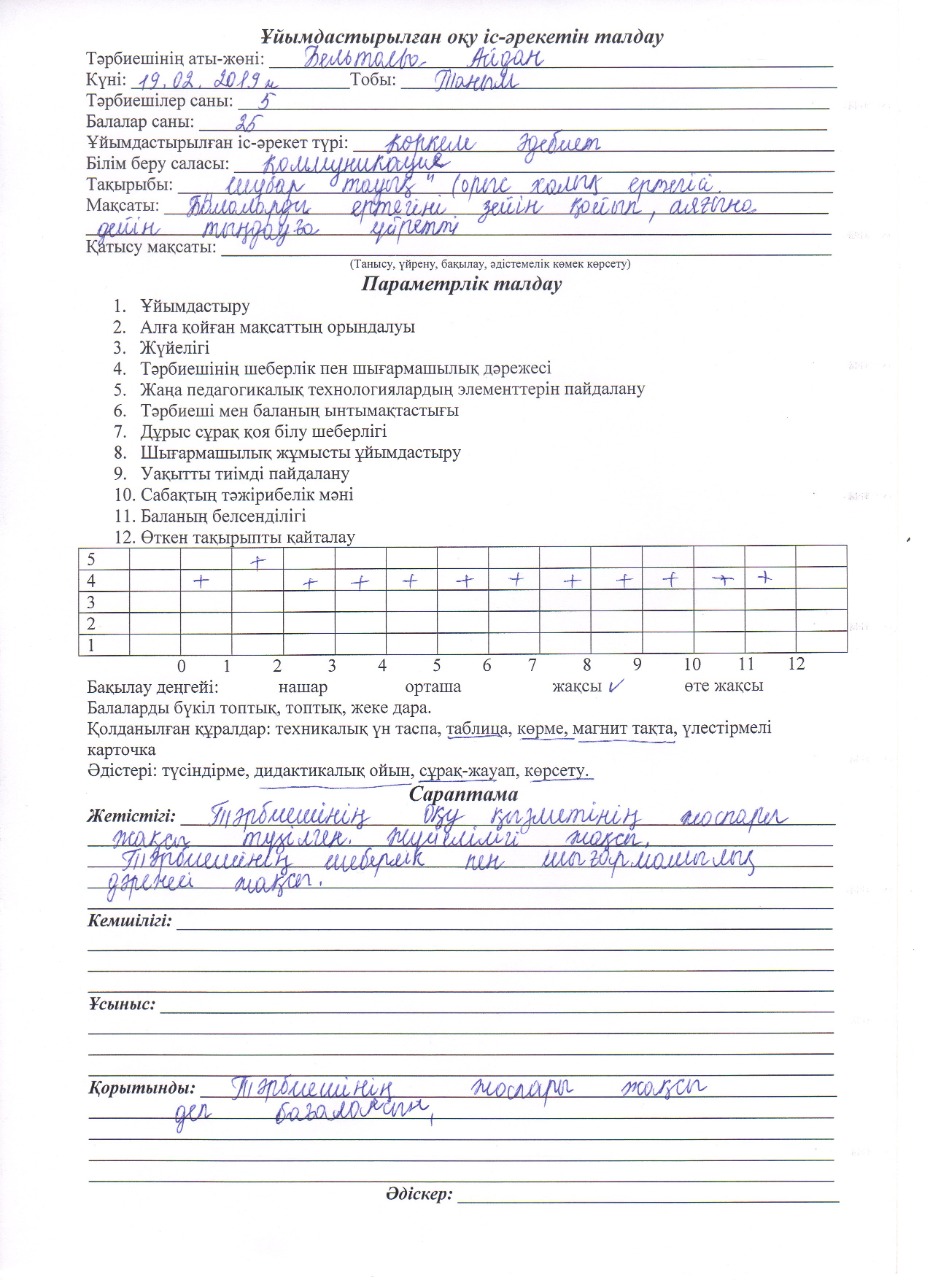 Ұйымдастырылған оқу іс-әрекетін талдау
Тәрбиешінің аты-жөні: Айдан
Күні: 19.02.2019 ж Тобы: Таным
Тәрбиешілер саны: 5
Балалар саны: 25
Ұйымдастырылған іс-әрекет түрі: көркем әдебиет
Білім беру саласы: Коммуникация
Тақырыбы: "Шұбар тауық" (орыс халық ертегісі.
Мақсаты: Балаларды ертегіні зейін қойып, аяғына
дейін тыңдауға үйретті
Қатысу мақсаты:
(Танысу, үйрену, бақылау, әдістемелік көмек көрсету)
Параметрлік талдау
1. Ұйымдастыру
2. Алға қойған мақсаттың орындалуы
3. Жүйелігі
4. Тәрбиешінің шеберлік пен шығармашылық дәрежесі
5. Жаңа педагогикалық технологиялардың элементтерін пайдалану
6. Тәрбиеші мен баланың ынтымақтастығы
7. Дұрыс сұрақ қоя білу шеберлігі
8. Шығармашылық жұмысты ұйымдастыру
9. Уақытты тиімді пайдалану
10. Сабақтың тәжірибелік мәні
11. Баланың белсенділігі
12. Өткен тақырыпты қайталау
5 +
4 + + + + + + + + + + +
3
2
1
0 1 2 3 4 5 6 7 8 9 10 11 12
Бақылау деңгейі: нашар орташа жақсы ✓ өте жақсы
Балаларды бүкіл топтық, топтық, жеке дара.
Қолданылған құралдар: техникалық үн таспа, таблица, көрме, магнит тақта, үлестірмелі
карточка
Әдістері: түсіндірме, дидактикалық ойын, сұрақ-жауап, көрсету.
Сараптама
Жетістігі: Тәрбиешінің оқу қызметінің жоспары
жақсы түзілген. жүйелілігі жақсы.
Тәрбиешінің шеберлік пен шығармашылық
дәрежесі жақсы.
Кемшілігі:
Ұсыныс:
Қорытынды: Тәрбиешінің жоспары жақсы
деп бағалансын,
Әдіскер: